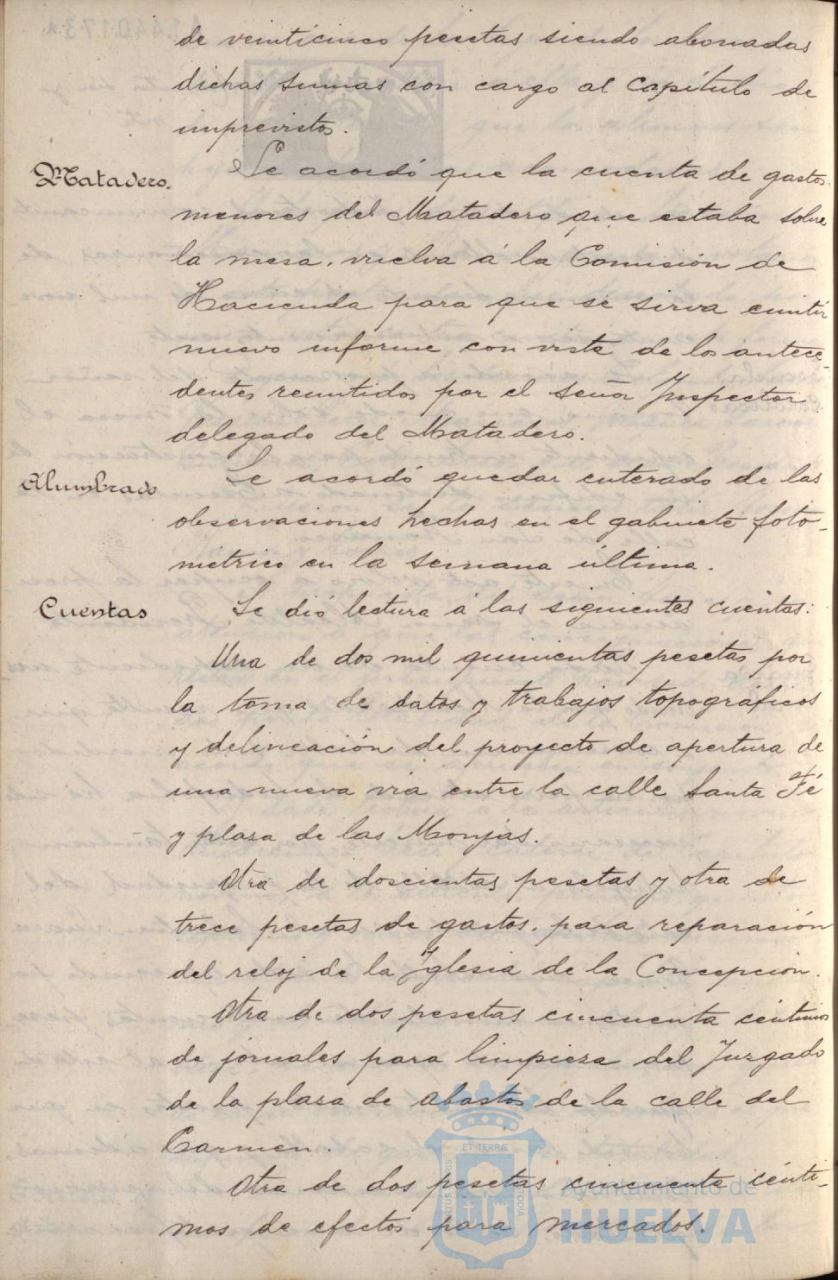 de veinticinco pesetas siendo abonadas
dichas sumas con cargo al Capítulo de
imprevistos.
Matadero.
Se acordó que la cuenta de gastos
menores del Matadero que estaba sobre
la mesa, vuelva á la Comisión de
Hacienda para que se sirva emitir
nuevo informe con vista de los antece-
dentes remitidos por el señor Inspector
delegado del Matadero.
Alumbrado
Se acordó quedar enterado de las
observaciones hechas en el gabinete foto-
métrico en la semana última.
Cuentas
Se dió lectura á las siguientes cuentas:
Una de dos mil quinientas pesetas por
la toma de datos y trabajos topográficos
y delineación del proyecto de apertura de
una nueva vía entre la calle Santa Fé
y plaza de las Monjas.
Otra de doscientas pesetas y otra de
trece pesetas de gastos, para reparación
del reloj de la Yglesia de la Concepción.
Otra de dos pesetas cincuenta céntimos
de jornales para limpieza del Juzgado
de la plaza de abastos de la calle del
Carmen.
Otra de dos pesetas cincuenta cénti-
mos de efectos para mercados.
Ayuntamiento de
HUELVA